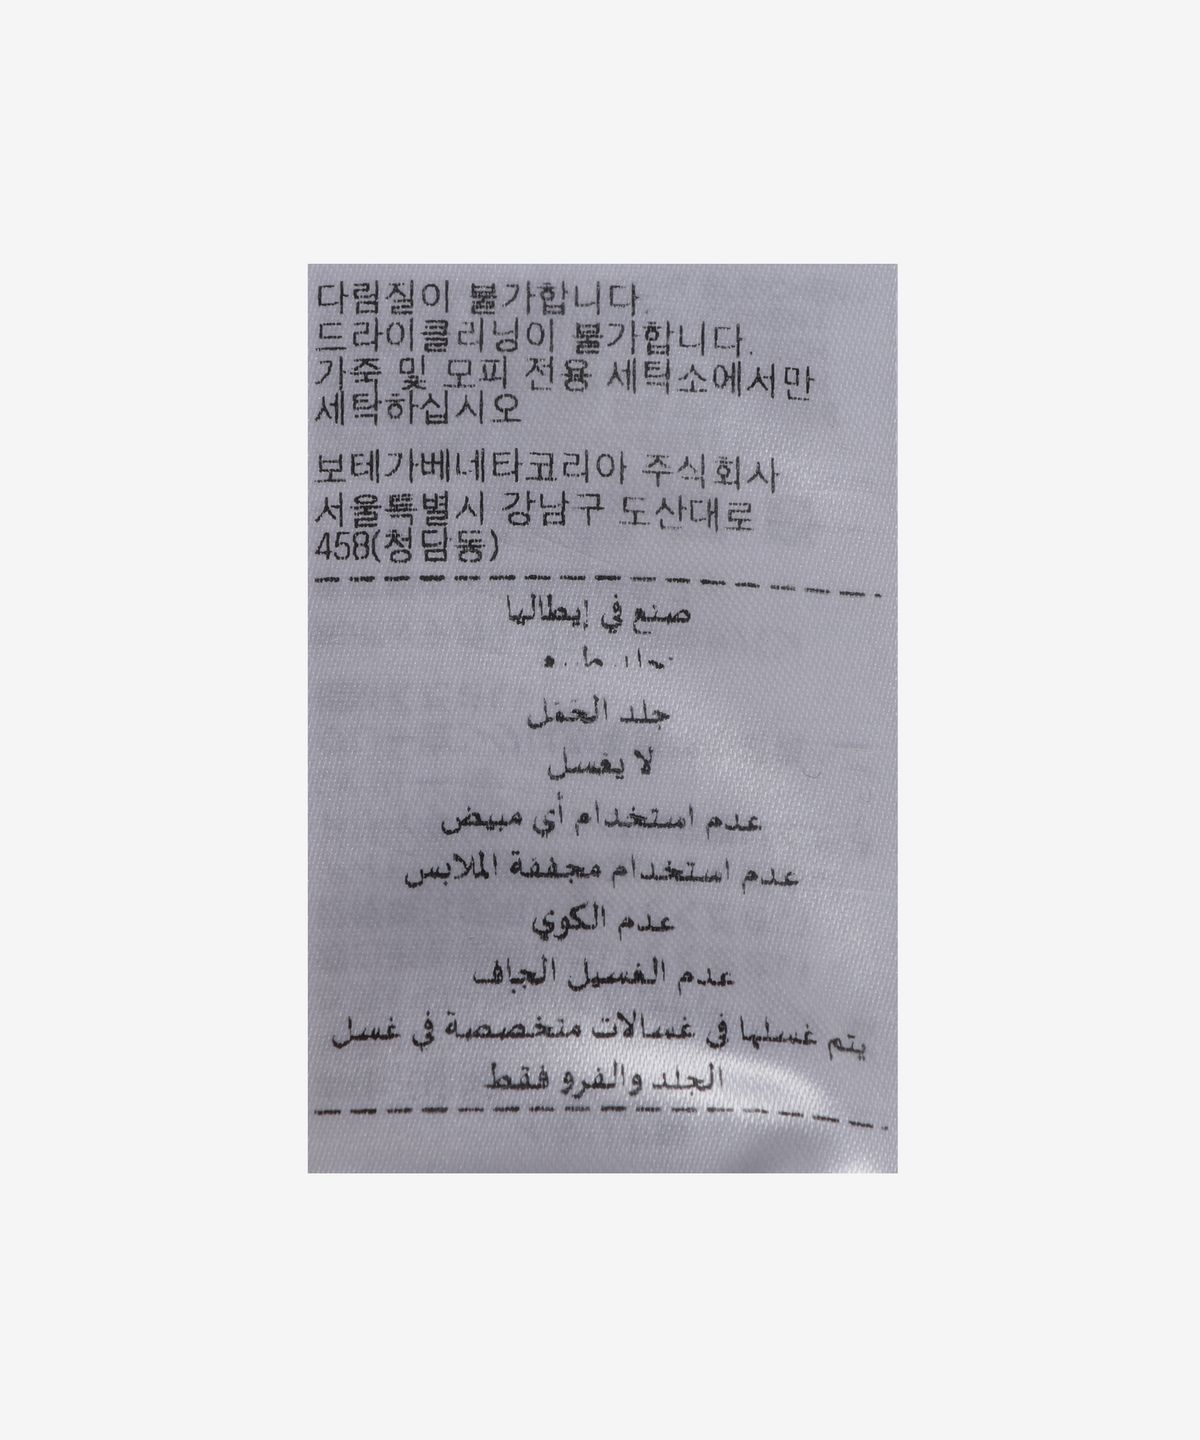 다림질이 불가합니다.
드라이클리닝이 불가합니다.
가죽 및 모피 전용 세탁소에서만
세탁하십시오
보테가베네타코리아 주식회사
서울특별시 강남구 도산대로
458(청담동)
صنع في إيطاليا
جلد الحَمَل
لا يغسل
عدم استخدام أي مبيض
عدم استخدام مجففة الملابس
عدم الكوي
عدم الغسيل الجاف
يتم غسلها في غسالات متخصصة في غسل
الجلد والفرو فقط